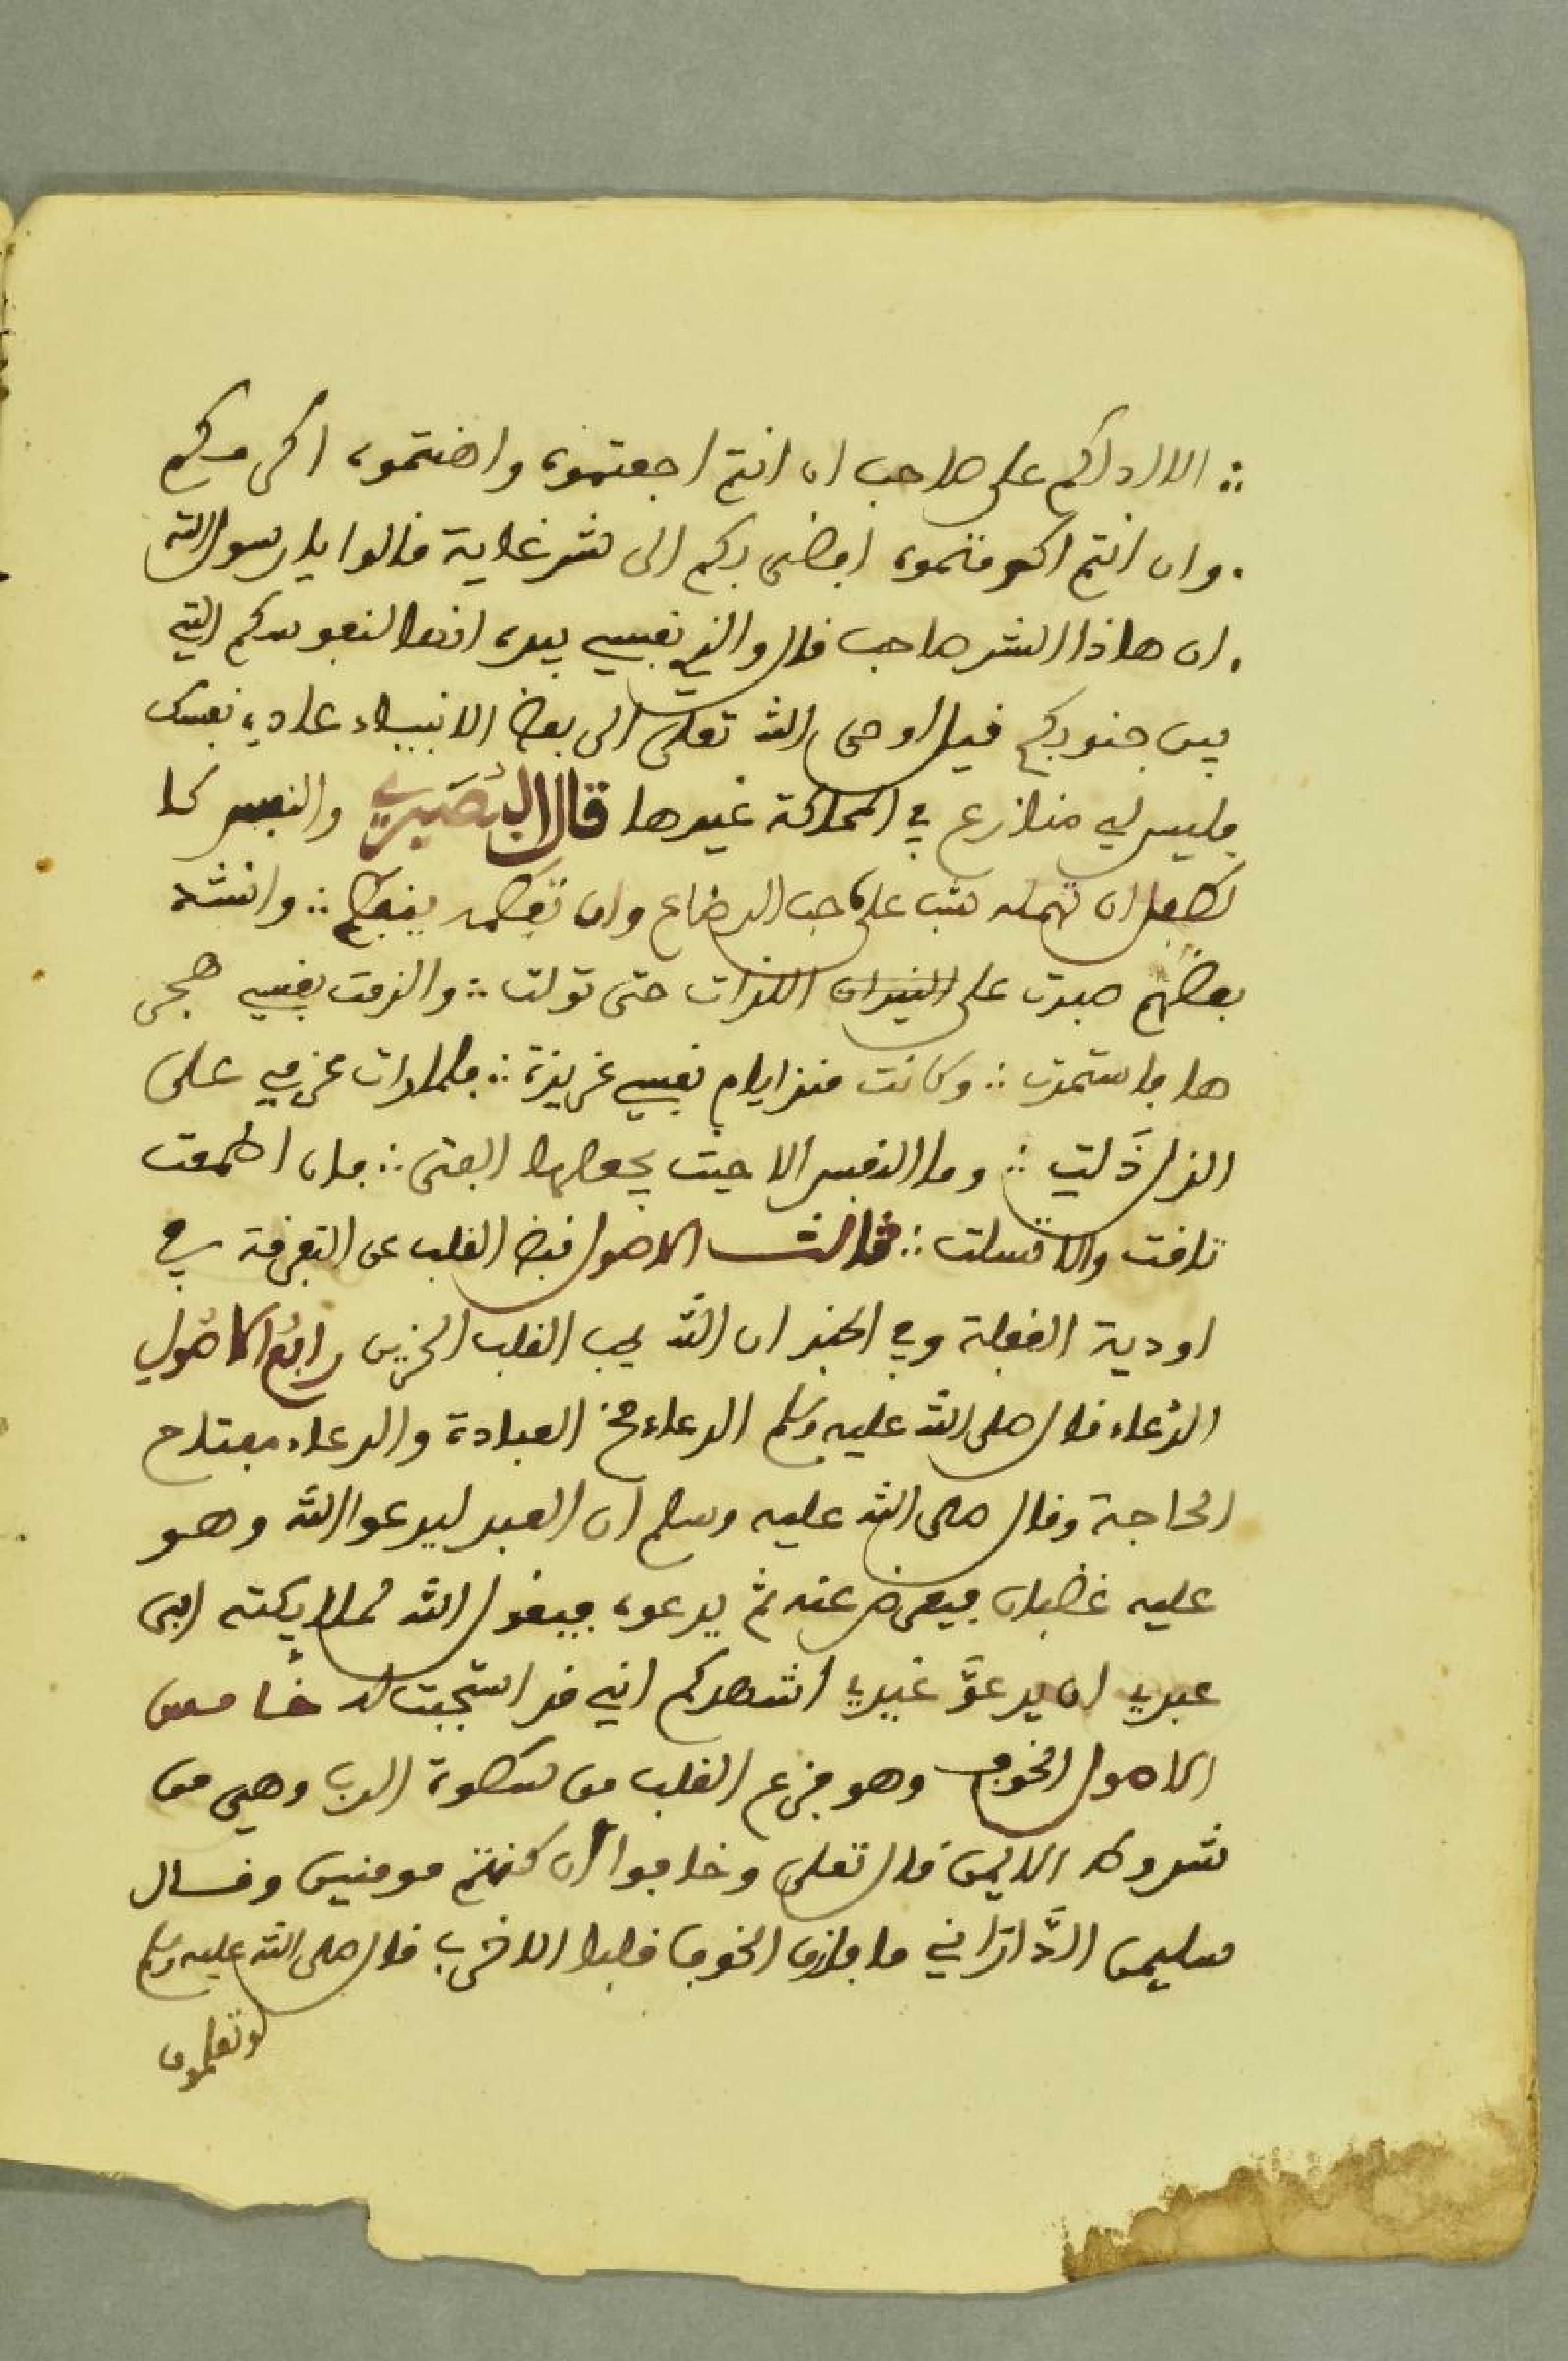 الا ادلكم على صاحب ان انتم اجعتموه واهنتموه اكرمكم
وان انتم اكرمتموه افضى بكم الى شر غاية قالوا يا رسول الله
ان هاذا الشر صاحب قال والذي نفسي بيده انها لنفوسكم التي
بين جنوبكم قيل اوحى الله تعلى الى بعض الانبياء عادي نفسك
فليس لي منازع في المملكة غيرها قال البُصَيري والنفس كا
لطفل ان تهمله شب على حب الرضاع وان تفطمه ينفطم ∴ وانشد
بعضهم صبرت على اللذات حتى تولت ∴ والزمت نفسي هجر
ها فاستمرت ∴ وكانت منذ ايام نفسي عزيزة ∴ فلما رات عزمي على
الذل ذَلت ∴ وما النفس الا حيث يجعلها الفتى ∴ فان اطمعت
تاقت والا تسلت ∴ ثالث الاصول قبض القلب عن التفرقة في
اودية الغفلة وفي الخبر ان الله يحب القلب الحزين رابع الاصول
الدُعاء قال صلى الله عليه وسلم الدعاء مخ العبادة والدعاء مفتاح
الحاجة وقال صلى الله عليه وسلم ان العبد ليدعوا الله وهو
عليه غضبان فيعرض عنه ثم يدعوه فيقول الله لملايكته ابى
عبدي ان يدعوَّ غيري اشهدكم اني قد استجبت له خامس
الاصول الخوف وهو فزع القلب من سطوة الرب وهي من
شروط الايمن قال تعلى وخافوا ان كنتم مومنين وقال
سليمن الدَّاراني ما فارق الخوف قلبا الا خرب قال صلى الله عليه وسلم
لو تعلمون